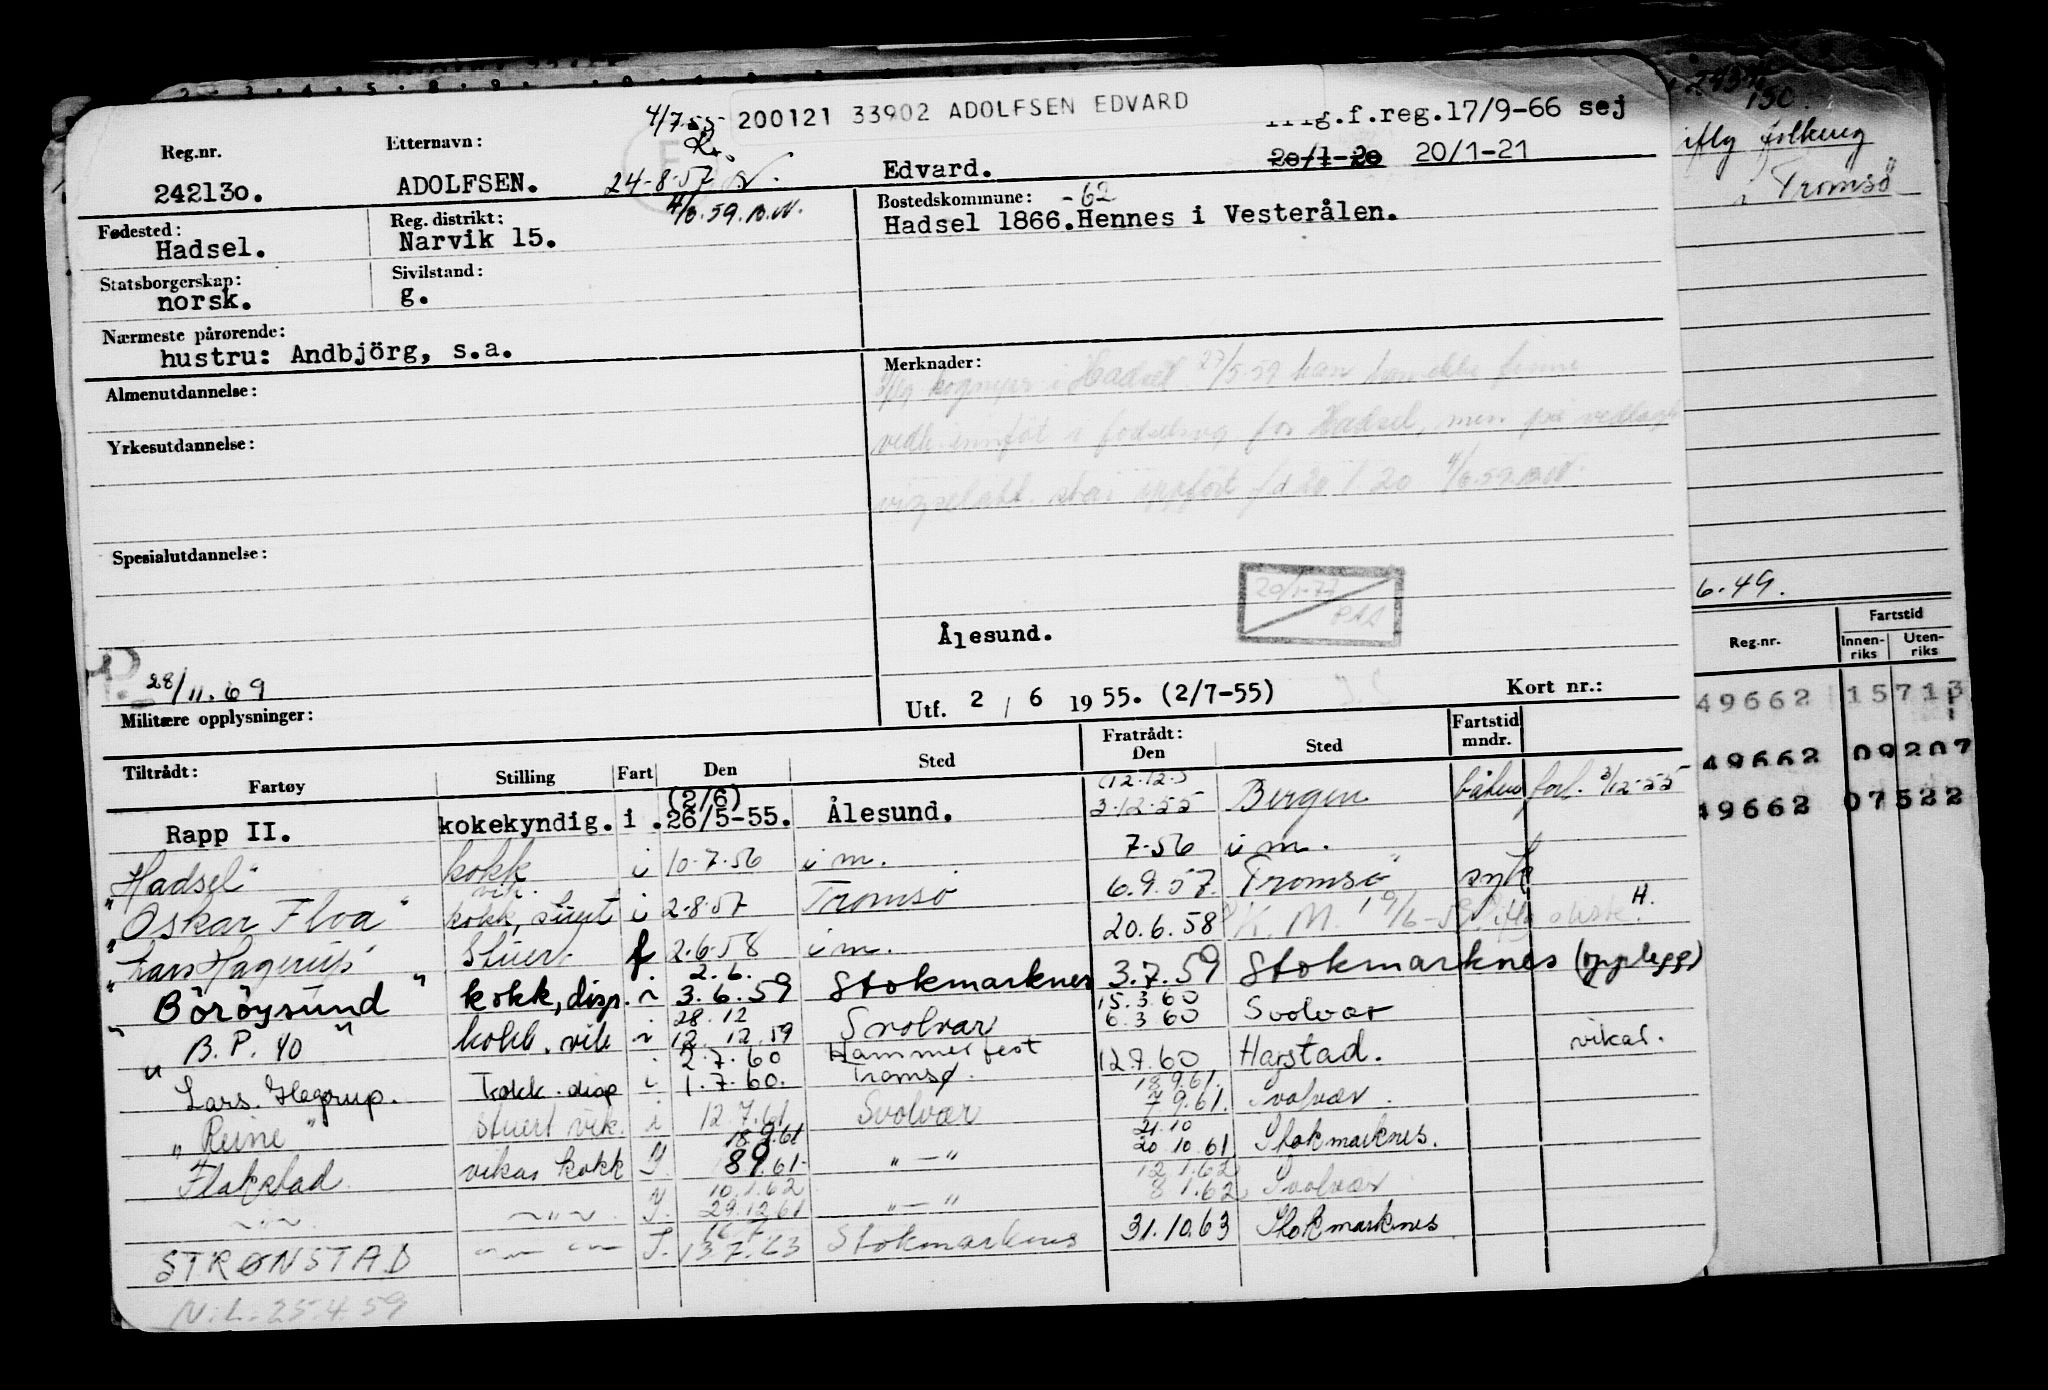 4/7-55 200121 33902 ADOLFSEN EDVARD .f.reg.17/9-66 sej
Reg.nr. Etternavn: 20/1-20 20/1-21
242130. ADOLFSEN. 24-8-57 Edvard.
4/6.59.B.N.
Fødested: Reg. distrikt: Bostedskommune: -62
Hadsel. Narvik 15. Hadsel 1866.Hennes i Vesterålen.
Statsborgerskap: Sivilstand:
norsk. g.
Nærmeste pårørende:
hustru: Andbjörg, s.a.
Merknader:
i Hadsel 27/5-59 han
i for Hadsel, men på vedlagt
20/1 20 4/6.59.B.N.
Almenutdannelse:
Yrkesutdannelse:
Spesialutdannelse:
20/1-77
Ålesund.
28/11.69
Militære opplysninger:
Utf. 2 / 6 1955. (2/7-55) Kort nr.:
Tiltrådt: Fratrådt: Fartstid
Fartøy Stilling Fart Den Sted Den Sted mndr.
(2/6) (12.12.5
Rapp II. kokekyndig. i. 26/5-55. Ålesund. 3-12-55 Bergen forl. 3/12-55
"Hadsel" kokk i 10-7-56 i m. 7-56 i m.
vik.
"Oskar Flva" kokk, stuert i 2-8-57 Tromsø 6.9.57. Tromsø syk
"Lars Hagerup" Stuert f 2-6-58 i m. 20.6.58 K. M. H.
2.6.
"Böröysund" kokk, disp. i 3.6.59 Stokmarknes 3.7.59 Stokmarknes (opplegg)
28.12 15.3.60
"B.P. 40" kokk. vik i 12.12.59 Svolvær 6.3 60 Svolvær
2.7.60 Hammerfest
Lars. Hagerup. kokk. disp i. 1.7.60. Tromsø. 12.7.60 Harstad. vikar.
18.9.61.
"Reine" Stuert vik. i 12.7.61 Svolvær 7 9.61. Svolvær.
18.9.61 21.10
Flakstad vikar kokk 8 9.61- " — " 20 10.61 Stokmarknes.
10.1.62 12.1.62
~"~. ~"~. 29.12.61 " — " 8 1.62 Svolvær
16.7
STRØNSTAD 13.7.63 Stokmarknes 31.10.63 Stokmarknes
N.L. 25.4.59
130.
iflg folkereg
i Tromsø
6.49.
Reg.nr. Fartstid
Innen-riks Uten-riks
49662 15713
49662 09207
49662 07522